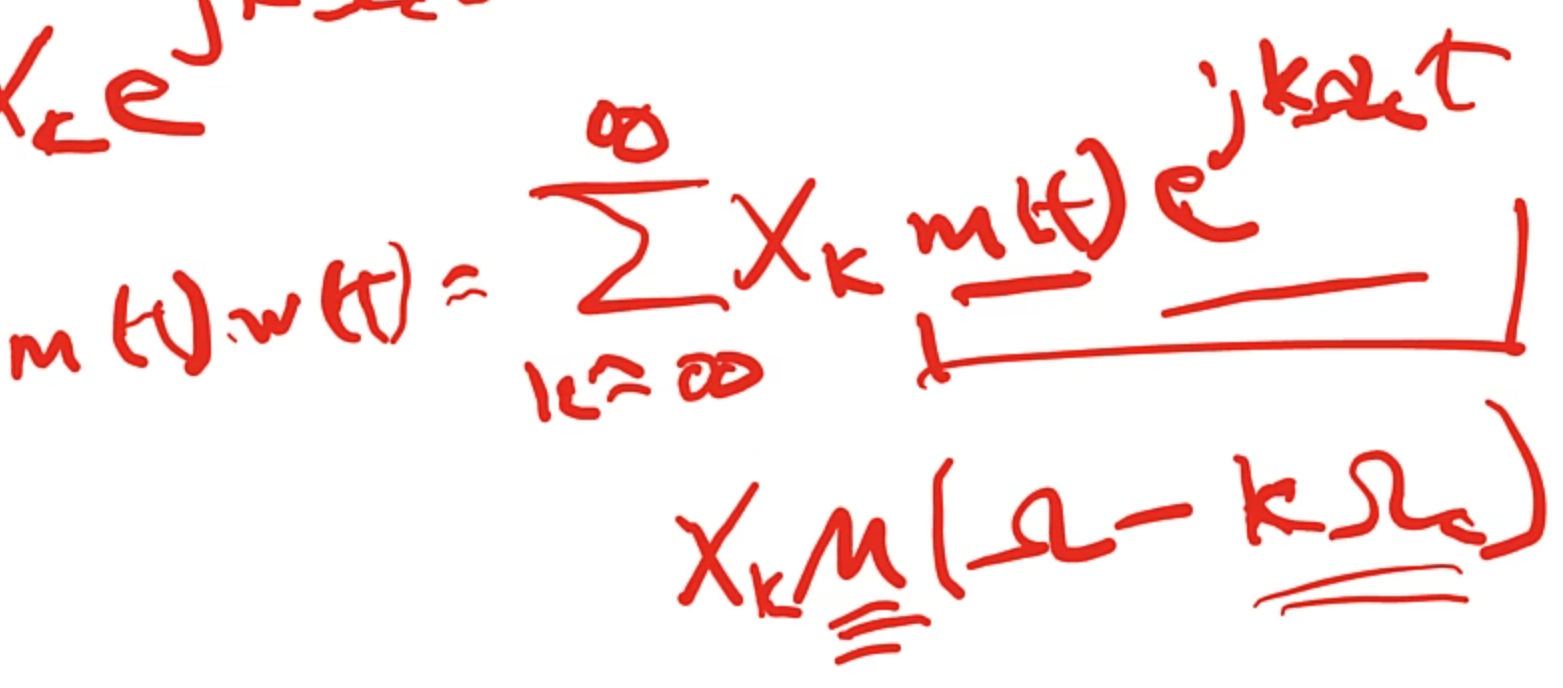 X_k e^{jkΩ_c
m(t).w(t) = \sum_{k=∞}^{∞} X_k m(t) e^{jkΩ_c t}
X_k M(Ω - kΩ_c)